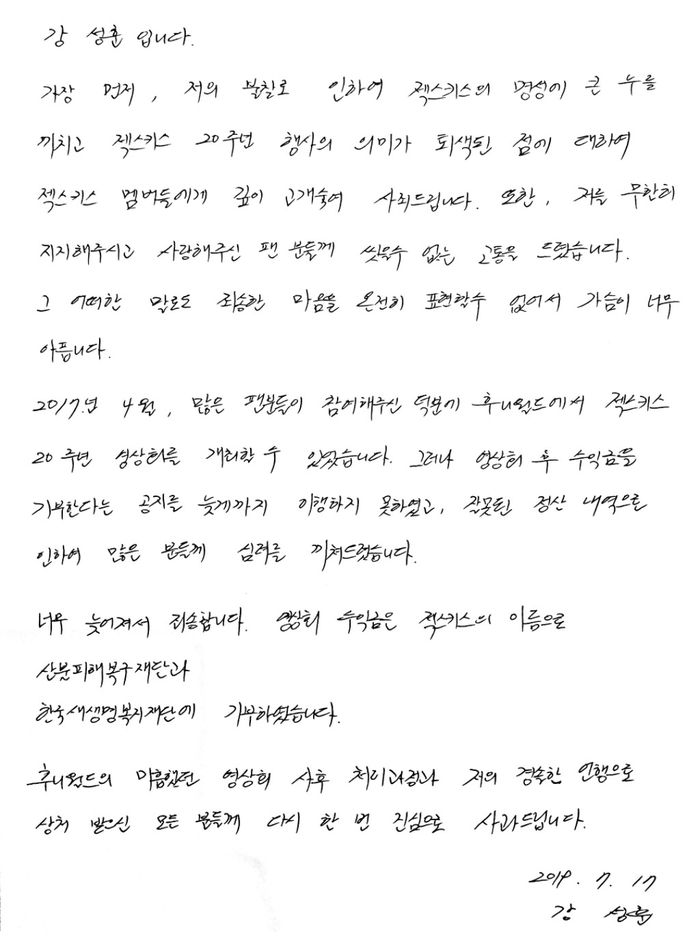 강 성훈 입니다.
가장 먼저, 저의 불찰로 인하여 젝스키스의 명성에 큰 누를
끼치고 젝스키스 20주년 행사의 의미가 퇴색된 점에 대하여
젝스키스 멤버들에게 깊이 고개숙여 사죄드립니다. 또한, 저를 무한히
지지해주시고 사랑해주신 팬 분들께 씻을수 없는 고통을 드렸습니다.
그 어떠한 말로도 죄송한 마음을 온전히 표현할수 없어서 가슴이 너무
아픕니다.
2017년 4월, 많은 팬분들이 참여해주신 덕분에 후니월드에서 젝스키스
20주년 영상회를 개최할 수 있었습니다. 그러나 영상회 후 수익금을
기부한다는 공지를 늦게까지 이행하지 못하였고, 잘못된 정산 내역으로
인하여 많은 분들께 심려를 끼쳐드렸습니다.
너무 늦어져서 죄송합니다. 영상회 수익금은 젝스키스의 이름으로
산불피해복구재단과
한국새생명복지재단에 기부하였습니다.
후니월드의 미흡했던 영상회 사후 처리과정과 저의 경솔한 언행으로
상처 받으신 모든 분들께 다시 한 번 진심으로 사과드립니다.
2019. 7. 17
강 성훈